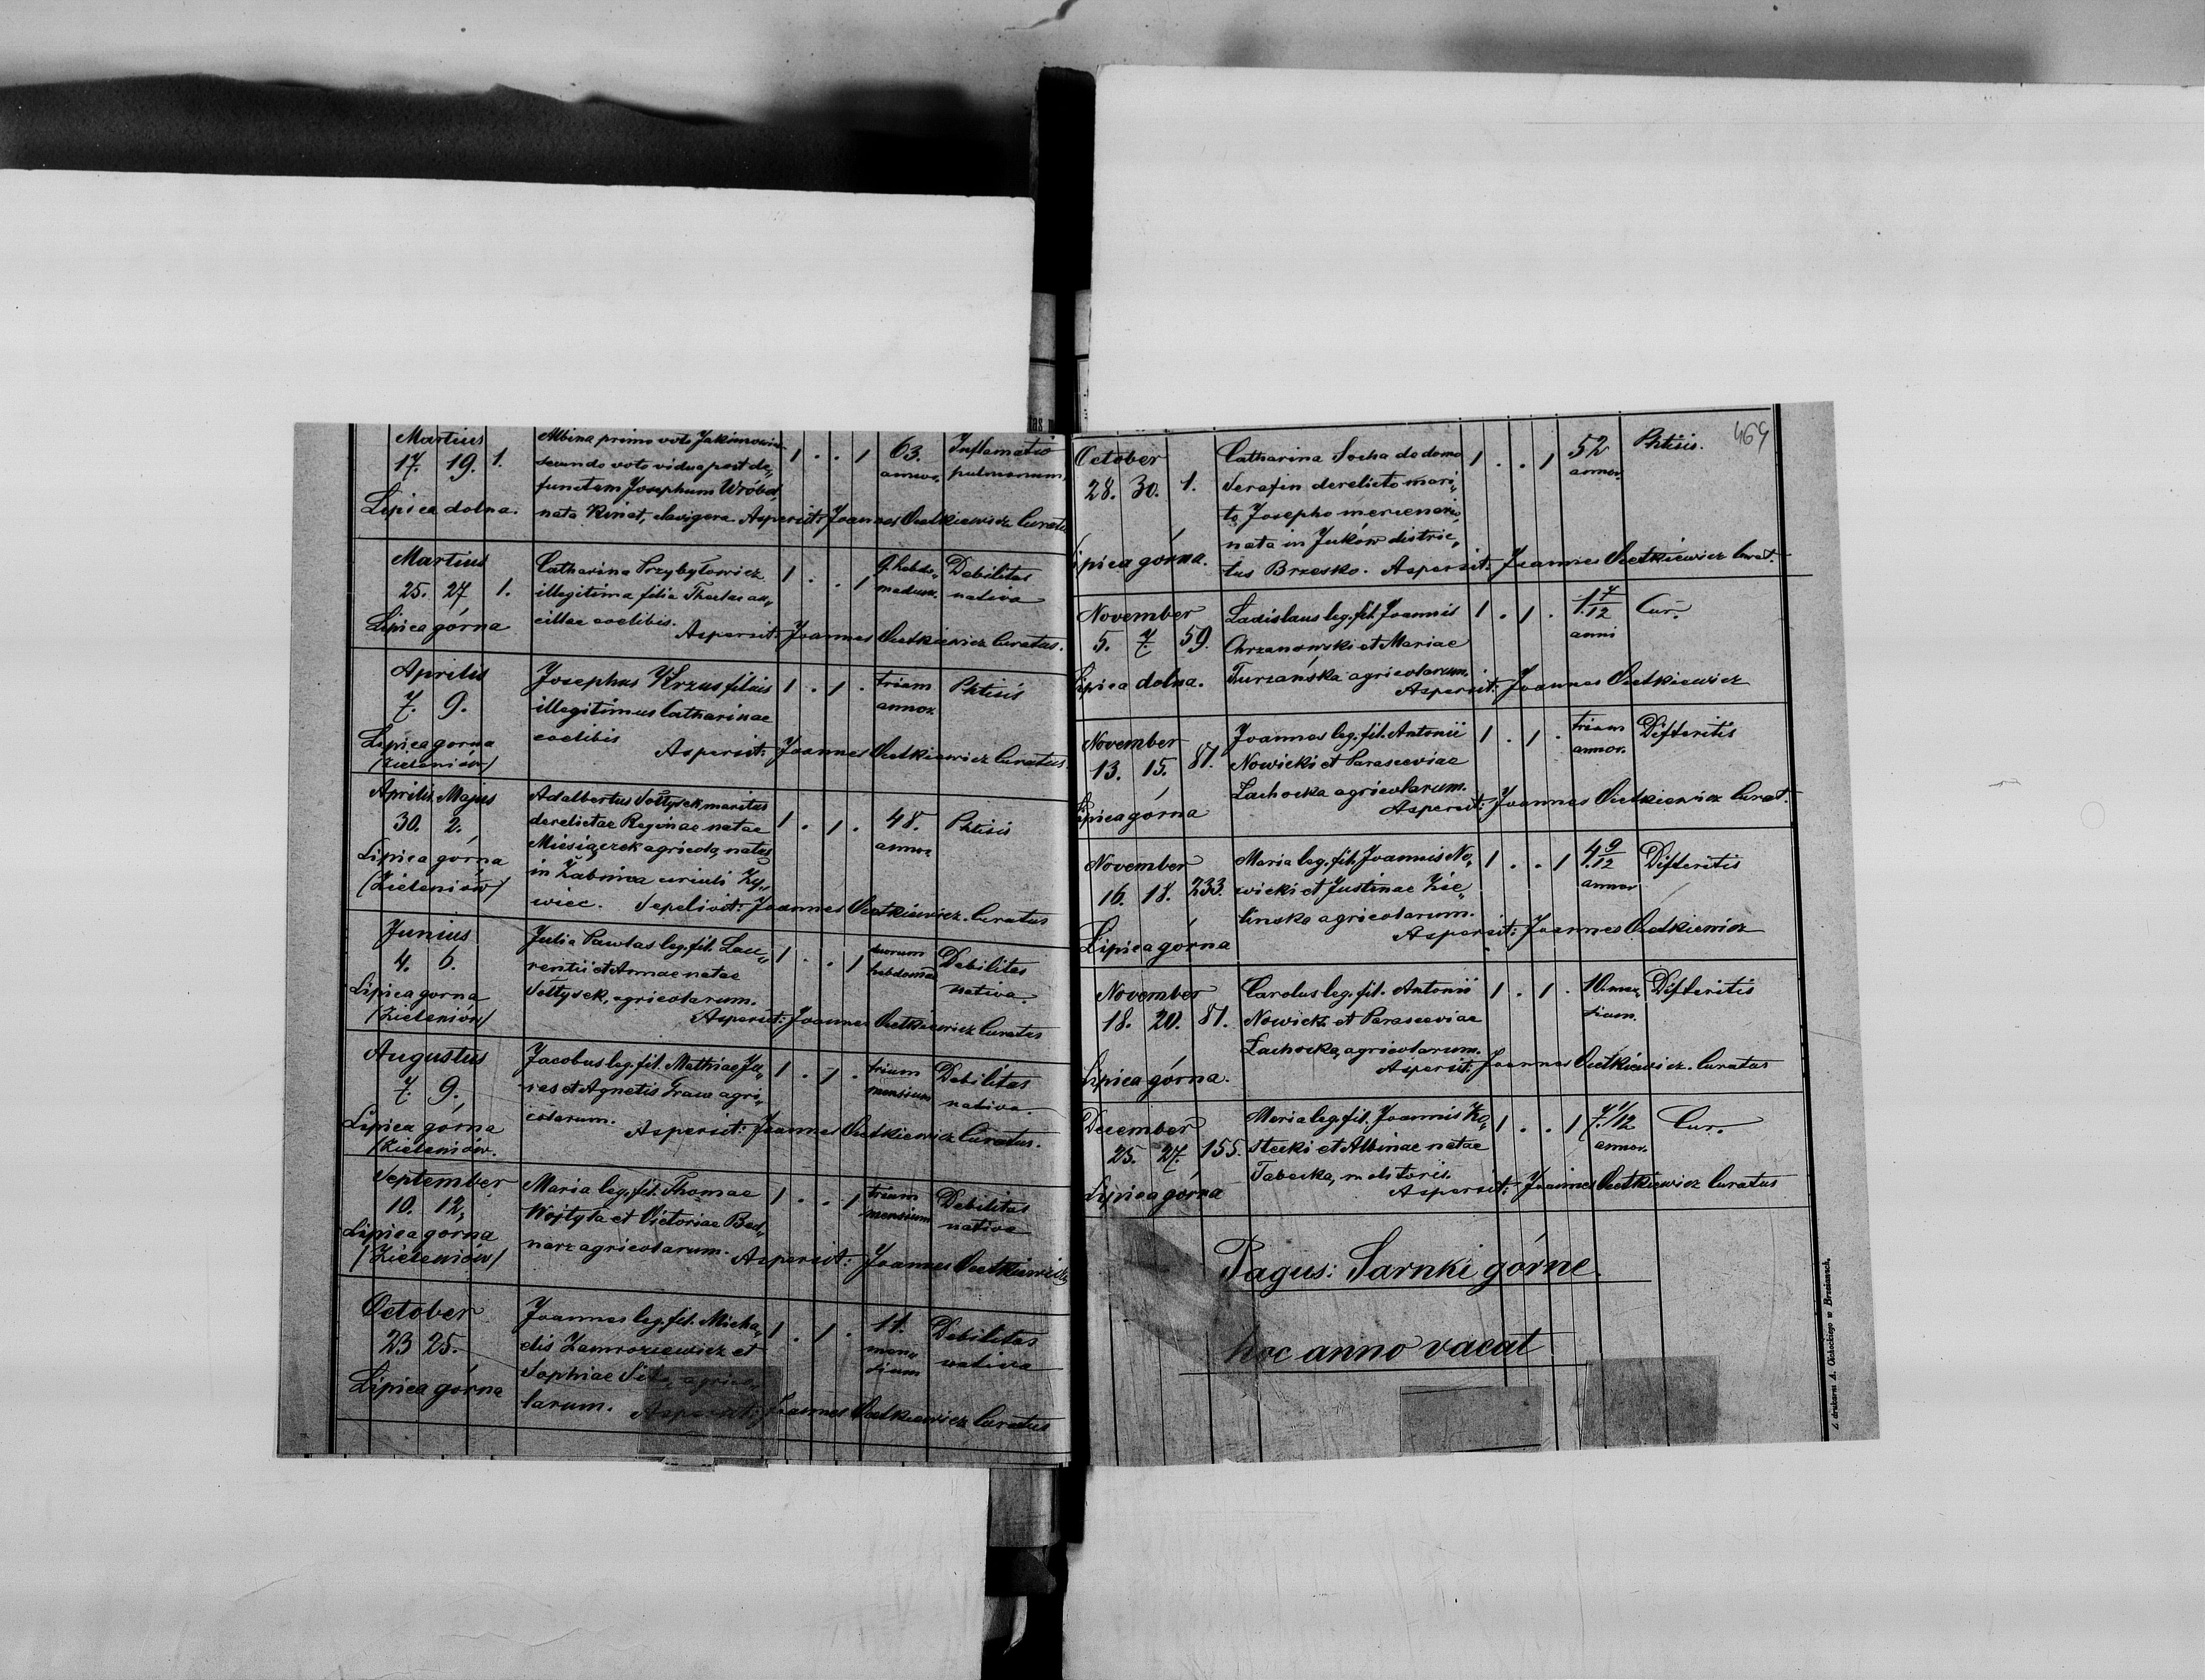 Martius
17. 19. 1.
Lipica dolna.
Albina primo voto Jakimowicz
secundo voto vidua post de„
functum Josephum Wróbel,
nata Kunat, clavigera. Aspersit: Joannes Ocetkiewicz Curatus
1 . . 1 63. annor. Inflamatio pulmonum.
Martius
25. 27 1.
Lipica górna
Catharina Przybyłowicz
illegitima filia Theclae an„
cillae coelibis.
Aspersit: Joannes Ocetkiewicz Curatus.
1 . . 1 9. hebdo„ madum. Debilitas nativa
Aprilis
7. 9.
Lipica górna
/Zieleniów/
Josephus Krzus filius
illegitimus Catharinae
coelibis
Aspersit: Joannes Ocetkiewicz Curatus.
1 . 1 . trium annor. Phtisis
Aprilis. Majus
30. 2.
Lipica górna
/Zieleniów/
Adalbertus Sołtysek, maritus
derelictae Reginae natae
Miesiączek agricola, natus
in Żabnica circuli Ży„
wiec. Sepelivit: Joannes Ocetkiewicz. Curatus
1 . 1 . 48. annor. Phtisis
Junius
4. 6.
Lipica gorna
/Zieleniów/
Julia Pawlas leg. fil. Lau„
rentii et Annae natae
Sołtysek, agricolarum.
Aspersit: Joannes Ocetkiewicz Curatus
1 . . 1 duorum hebdomad. Debilitas nativa.
Augustus
7. 9.
Lipica górna
/Zieleniów.
Jacobus leg. fil. Mathiae Ju„
ras et Agnetis Graca agri„
colarum.
Aspersit: Joannes Ocetkiewicz Curatus.
1 . 1 . trium mensium Debilitas nativa.
September
10. 12,
Lipica górna
/Zieleniów/
Maria leg. fil. Thomae
Wojtyła et Victoriae Bed„
narz agricolarum.
Aspersit: Joannes Ocetkiewicz
1 . . 1 trium mensium Debilitas nativa
October
23 25.
Lipica górna
Joannes leg. fil. Micha„
elis Zamroziewicz et
Sophiae agrico„
larum.
Aspersit: Joannes Ocetkiewicz Curatus
1 . 1 . 11. men„ sium Debilitas nativa
469
October
28. 30. 1.
Lipica górna.
Catharina Socha de domo
Serafin derelicto mari„
to Josepho mercenario,
nata in Juków distric„
tus Brzesko. Aspersit: Joannes Ocetkiewicz Curat.
1 . . 1 52 annor. Phtisis.
November
5. 7. 59.
Lipica dolna.
Ladislaus leg. fil. Joannis
Chrzanowski et Mariae
Turzańska agricolarum.
Aspersit: Joannes Ocetkiewicz
1 . 1 . 1. 7/12 anni Cur.
November
13. 15. 81.
Lipica górna
Joannes leg. fil. Antonii
Nowicki et Parasceviae
Lachocka agricolarum.
Aspersit: Joannes Ocetkiewicz Curat.
1 . 1 . trium annor. Difteritis
November
16. 18. 233.
Lipica górna
Maria leg. fil. Joannis No„
wicki et Justinae Zie„
linska agricolarum.
Aspersit: Joannes Ocetkiewicz
1 . . 1 4. 9/12 annor Difteritis
November
18. 20. 81.
Lipica górna.
Carolus leg. fil. Antonii
Nowicki et Parasceviae
Lachocka, agricolarum.
Aspersit: Joannes Ocetkiewicz. Curatus
1 . 1 . 10. men„ sium. Difteritis
December
25. 27. 155.
Lipica górna
Maria leg. fil. Joannis Ko„
stecki et Albinae natae
Tabecka, molitoris.
Aspersit: Joannes Ocetkiewicz Curatus
1 . . 1 7. 1/12 annor. Cur.
Pagus: Sarnki górne.
hoc anno vacat
Z drukarni A. Cichockiego w Brzeżanach.